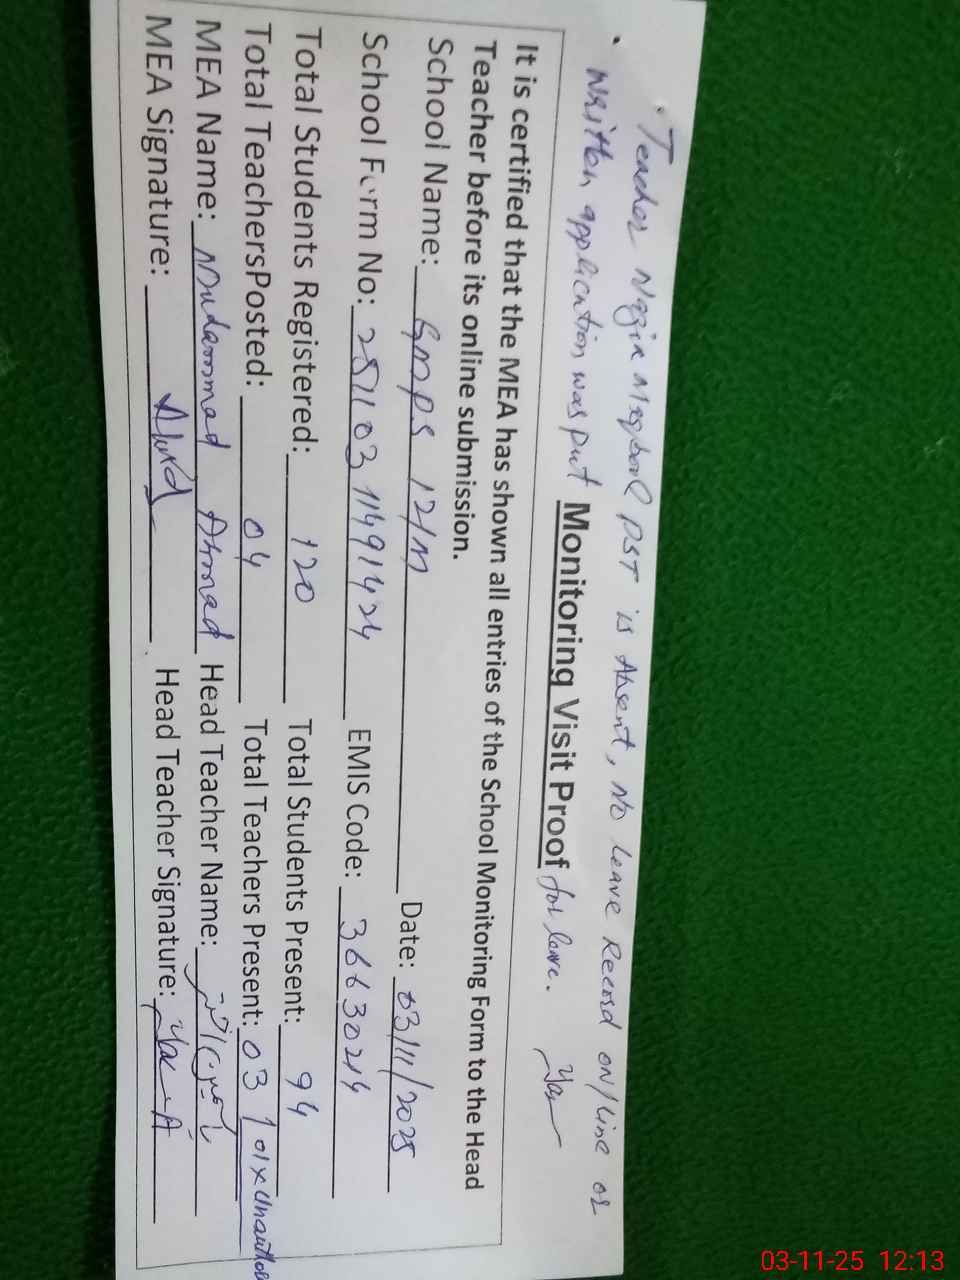 Teacher Nazia Maqbool PST is Absent, No Leave Record on/line or
written application was put for leave.
Monitoring Visit Proof
It is certified that the MEA has shown all entries of the School Monitoring Form to the Head
Teacher before its online submission.
School Name: GMPS 12/M Date: 03/11/2025
School Form No: 25110311491424 EMIS Code: 36630214
Total Students Registered: 120 Total Students Present: 94
Total TeachersPosted: 04 Total Teachers Present: 03 01x Unautho
MEA Name: Mudammad Ahmad Head Teacher Name:
MEA Signature: Head Teacher Signature:
03-11-25 12:13